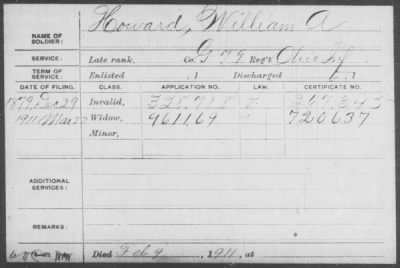 Howard, William A
NAME OF
SOLDIER:
SERVICE: Late rank, Co. G 79 Reg't Ohio Inf
TERM OF
SERVICE: Enlisted , 1 Discharged , 1
DATE OF FILING. CLASS. APPLICATION NO. LAW. CERTIFICATE NO.
1879, Dec 29 Invalid, 328,918
1911 Mar 27 Widow, 961169 720637
Minor,
ADDITIONAL
SERVICES:
REMARKS:
Died Feb 9 , 1911, at